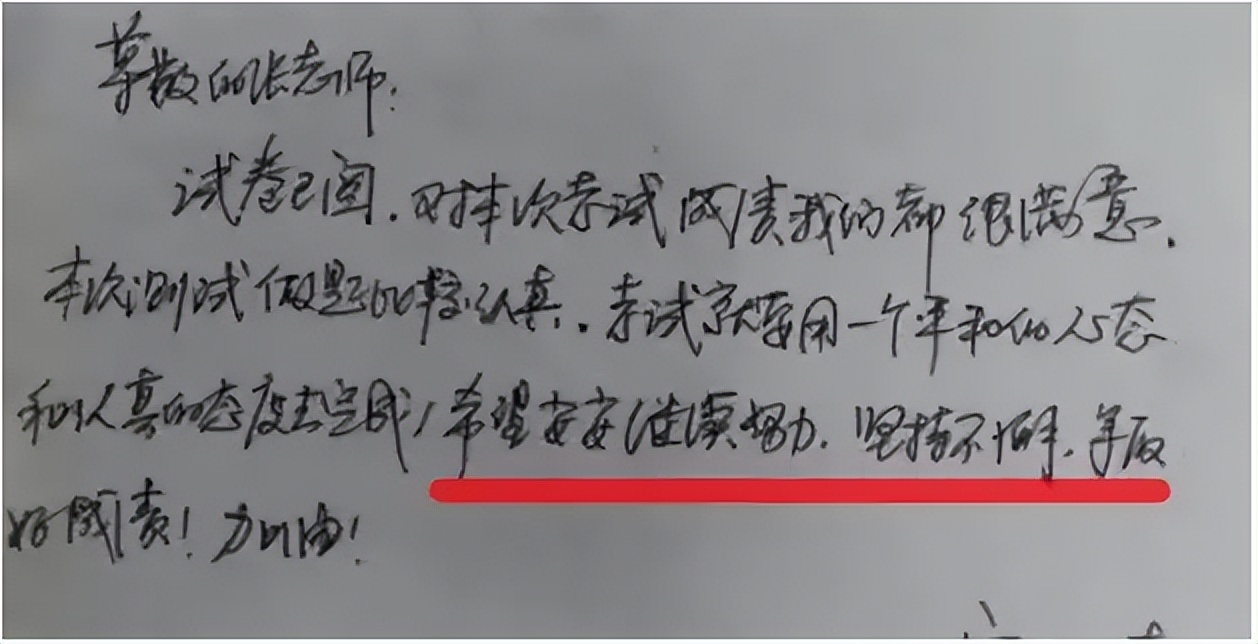 尊敬的张老师：
试卷已阅，对本次考试成绩我们都很满意，
本次测试做题比较认真，考试就要用一个平和的心态
和认真的态度去完成，希望安安继续努力，坚持不懈，争取
好成绩！加油！